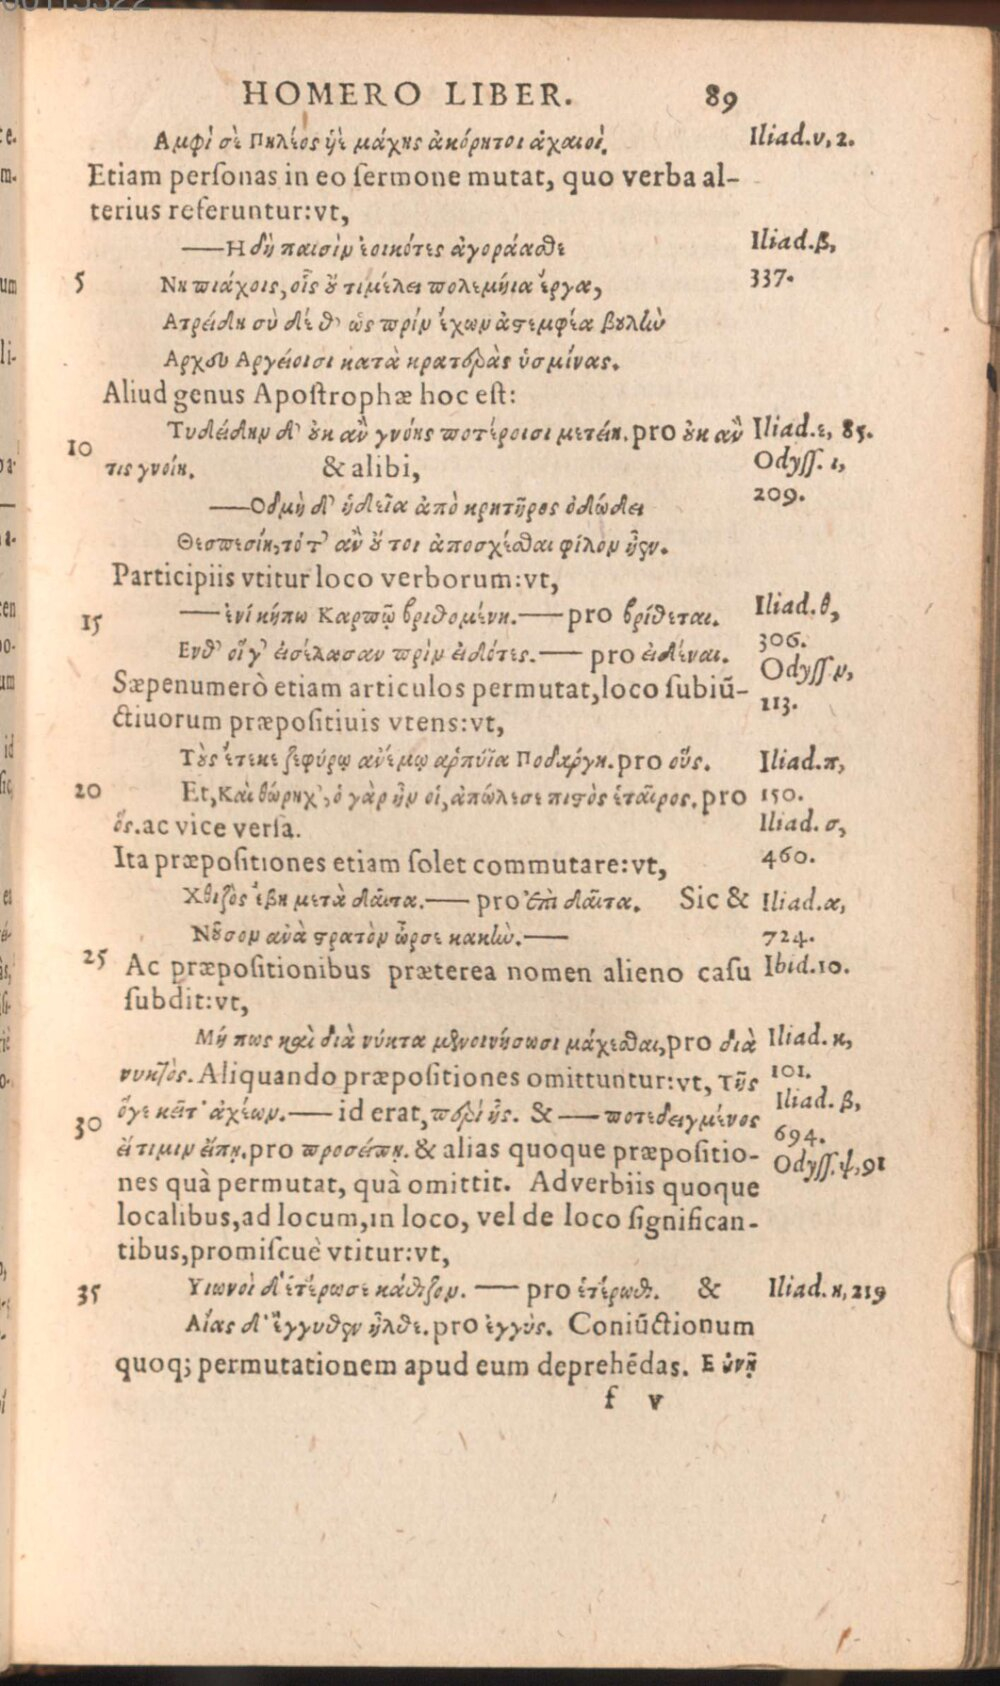 HOMERO LIBER. 89
Αμφὶ σὲ Πηλέος ὑὲ μάχης ἀκόρητοι ἀχαιοί. Iliad.υ, 2.
Etiam perſonas in eo ſermone mutat, quo verba al-
terius referuntur: vt,
—Η δὴ παισὶν ἐοικότες ἀγοράασθε Iliad.β,
5 Νηπιάχοις, οἷς οὔ τι μέλει πολεμήια ἔργα, 337.
Ατρείδη σὺ δέ θ' ὡς πρὶν ἔχων ἀστεμφέα βουλὴν
Αρχου Αργείοισι κατὰ κρατερὰς ὑσμίνας.
Aliud genus Apoſtrophæ hoc eſt:
Τυδείδην δ' οὐκ ἂν γνοίης ποτέροισι μετείη. pro οὐκ ἂν Iliad.ε, 85.
10 τις γνοίη. & alibi, Odyſſ. ι,
—Οδμὴ δ' ἡδεῖα ἀπὸ κρητῆρος ὀδώδει 209.
Θεσπεσίη, τότ' ἂν οὔ τοι ἀποσχέσθαι φίλον ἦεν.
Participiis vtitur loco verborum: vt,
15 —ἐνί κήπω Καρπῷ βριθομένη.— pro βρίθεται. Iliad.θ,
306.
Ενθ' οἵ γ' εἰσέλασαν πρὶν εἰδότες.— pro εἰδέναι. Odyſſ.ν,
Sæpenumerò etiam articulos permutat, loco ſubiū-
113.
ctiuorum præpoſitiuis vtens: vt,
Τοὺς ἔτεκε ζεφύρῳ ἀνέμῳ ἁρπύῖα Ποδάργη. pro οὕς. Iliad.π,
20 Et, Καὶ θώρηχ', ὁ γὰρ ἦν οἱ, ἀπώλεσε πιστὸς ἑταῖρος. pro 150.
ὅς. ac vice verſa. Iliad. σ,
Ita præpoſitiones etiam ſolet commutare: vt, 460.
Χθιζὸς ἔβη μετὰ δαῖτα.— pro ἐπὶ δαῖτα. Sic & Iliad.α,
Νοῦσον ἀνὰ στρατὸν ὦρσε κακὴν.— 724.
25 Ac præpoſitionibus præterea nomen alieno caſu Ibid.10.
ſubdit: vt,
Μή πως καὶ διὰ νύκτα μενοινήσωσι μάχεσθαι, pro διὰ Iliad. κ,
νυκτὸς. Aliquando præpoſitiones omittuntur: vt, τῆς 101.
Iliad. β,
30 ὅγε κεῖτ' ἀχέων.— id erat, περὶ ἧς. & — ποτιδεγμένος 694.
εἴ τι μιν εἴπῃ. pro προσείπῃ. & alias quoque præpoſitio- Odyſſ.ψ, 91
nes quà permutat, quà omittit. Adverbiis quoque
localibus, ad locum, in loco, vel de loco ſignifican-
tibus, promiſcuè vtitur: vt,
35 Υιωνοὶ δ' ἑτέρωσε κάθιζον. — pro ἑτέρωθι. & Iliad. κ, 219
Αἴας δ' ἔγγυθεν ἦλθε. pro ἐγγύς. Coniūctionum
quoq; permutationem apud eum deprehēdas. Ε ὐνῇ
f v